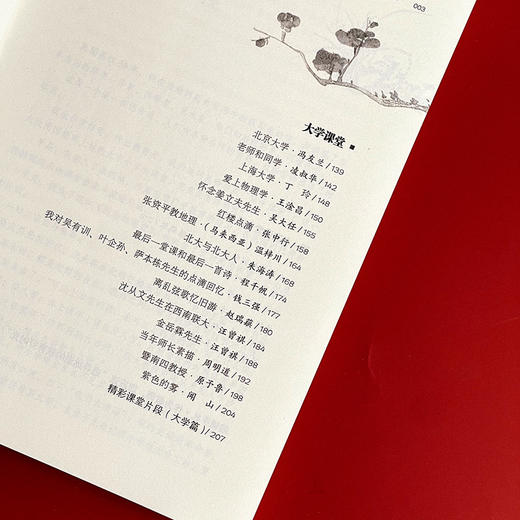 003
大学课堂
北京大学·冯友兰/139
老师和同学·凌叔华/142
上海大学·丁 玲/148
爱上物理学·王淦昌/150
怀念姜立夫先生·吴大任/155
红楼点滴·张中行/158
张资平教地理·(马来西亚)温梓川/164
北大与北大人·朱海涛/168
最后一堂课和最后一首诗·程千帆/174
我对吴有训、叶企孙、萨本栋先生的点滴回忆·钱三强/177
离乱弦歌忆旧游·赵瑞蕻/180
沈从文先生在西南联大·汪曾祺/184
金岳霖先生·汪曾祺/188
当年师长素描·周明道/192
暨南四教授·原于鲁/198
紫色的雾·闻 山/204
精彩课堂片段(大学篇)/207